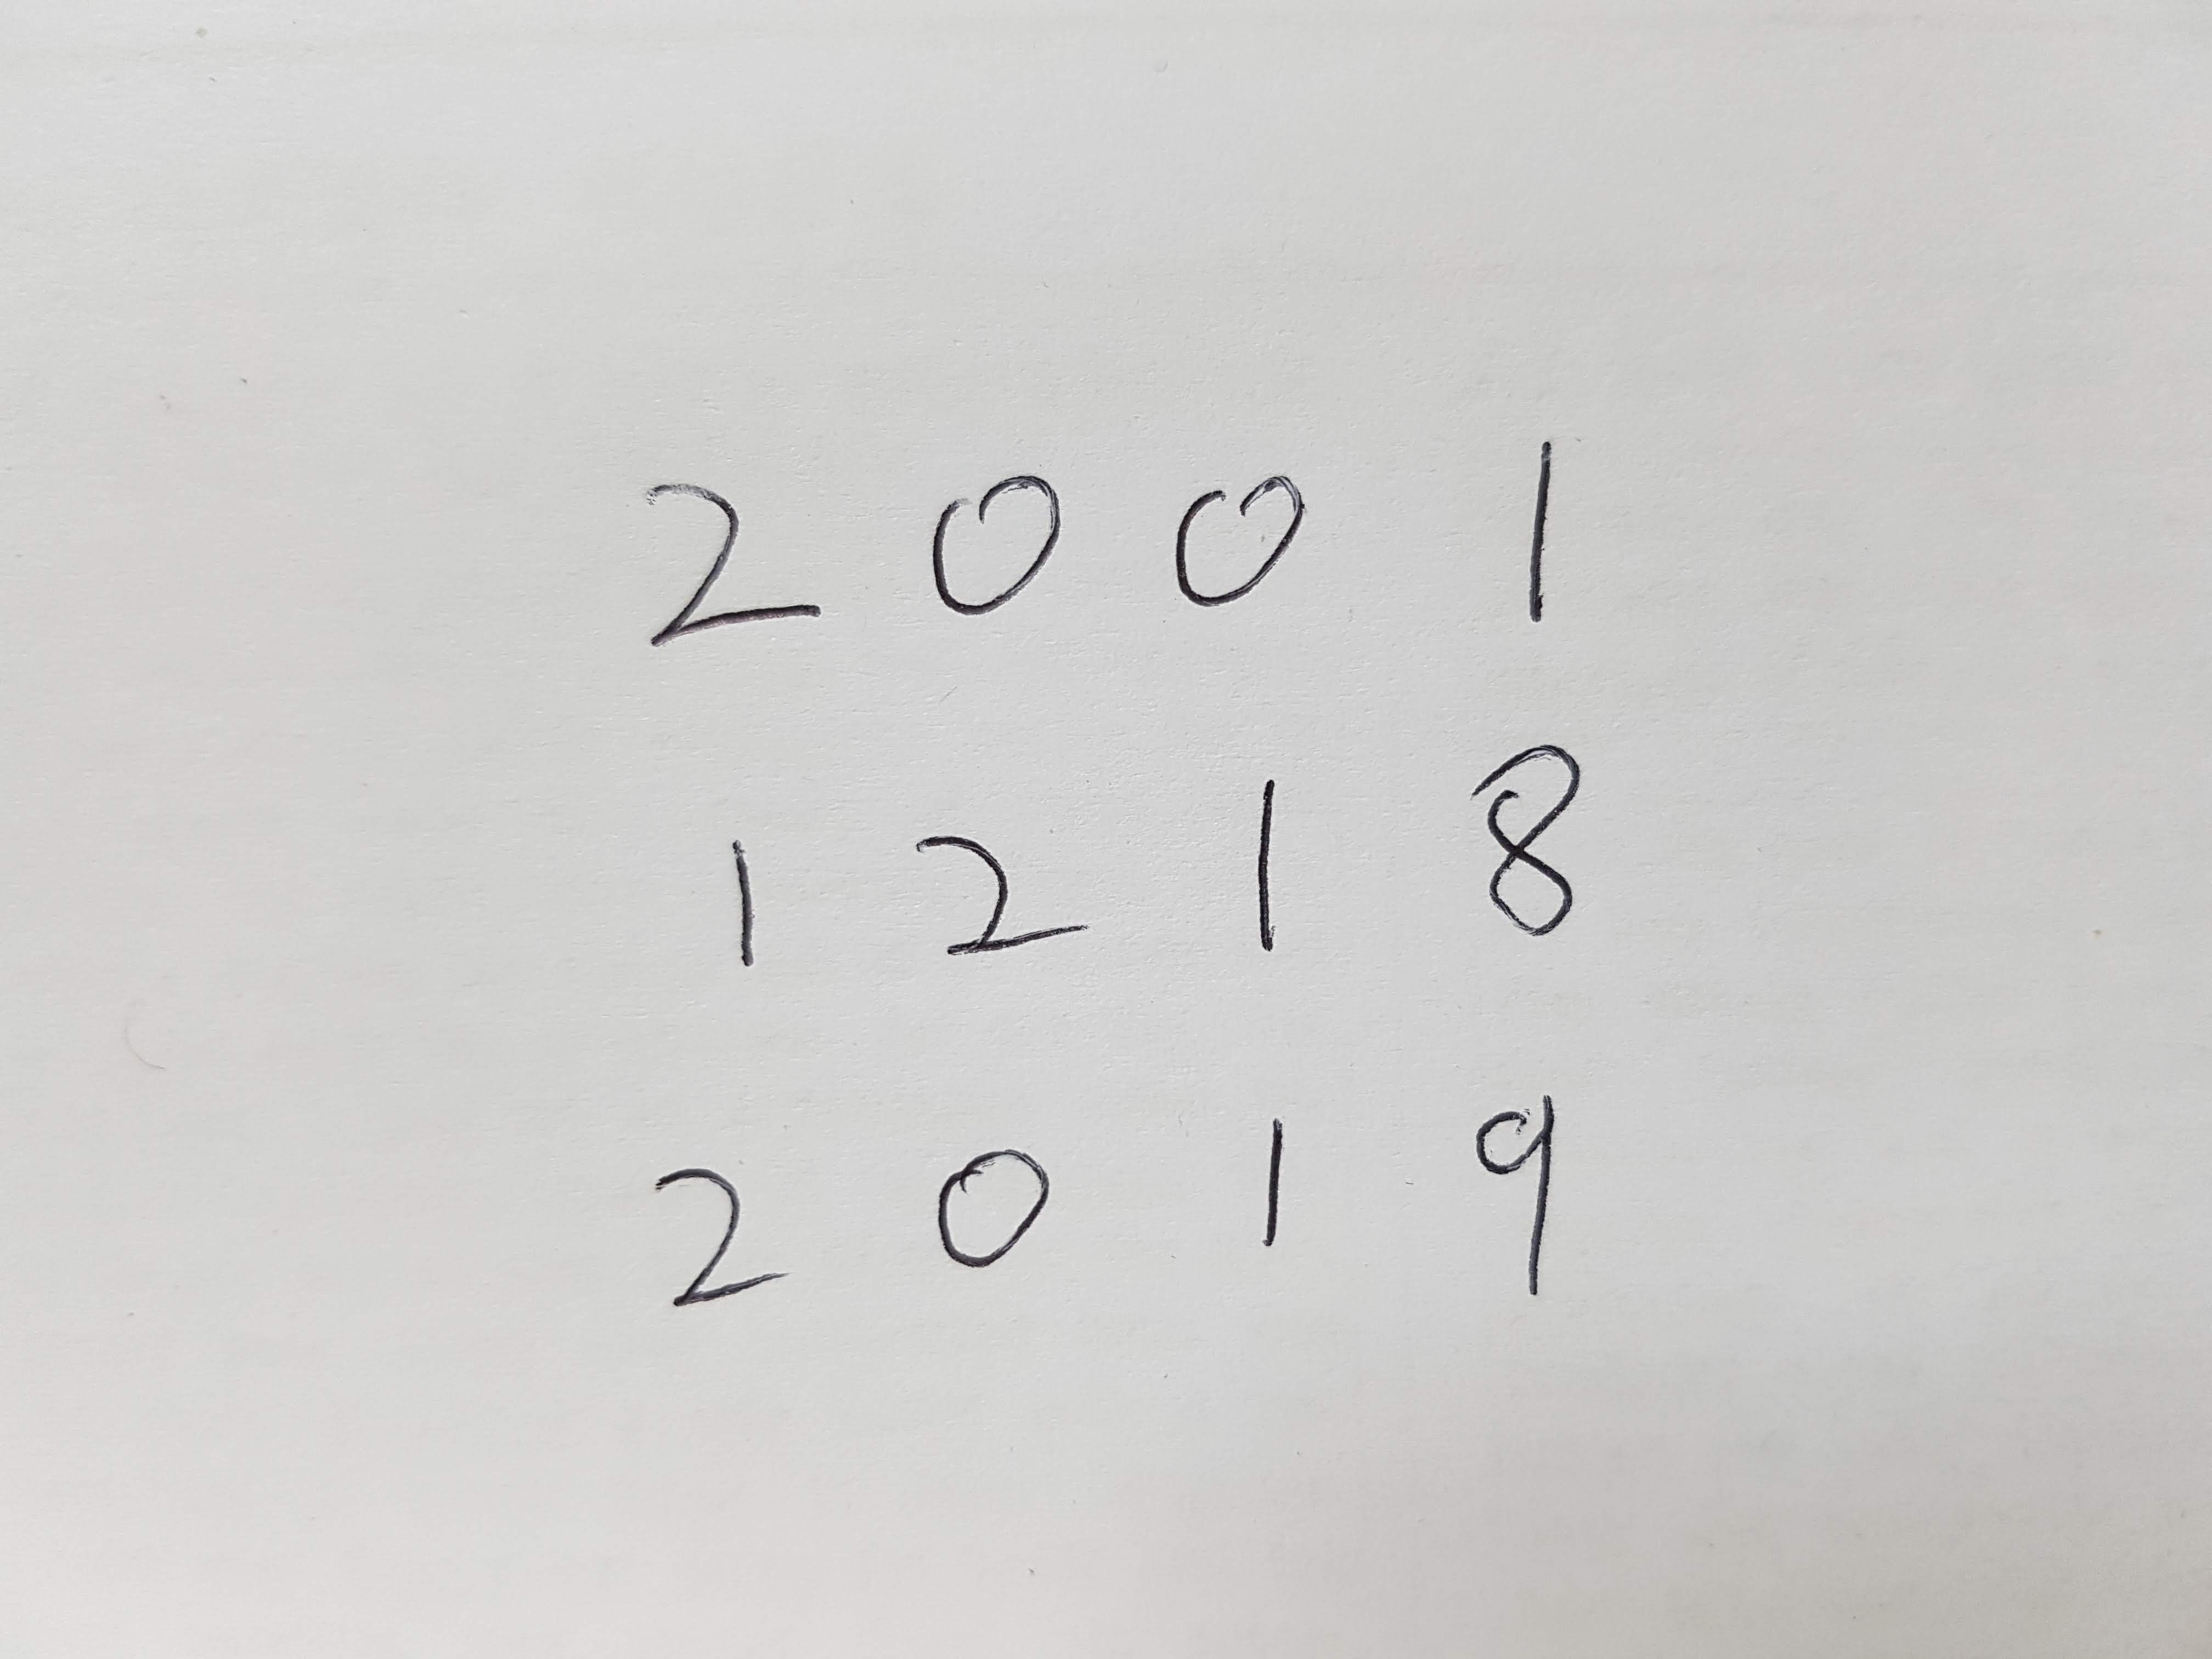 2 0 0 1
1 2 1 8
2 0 1 9